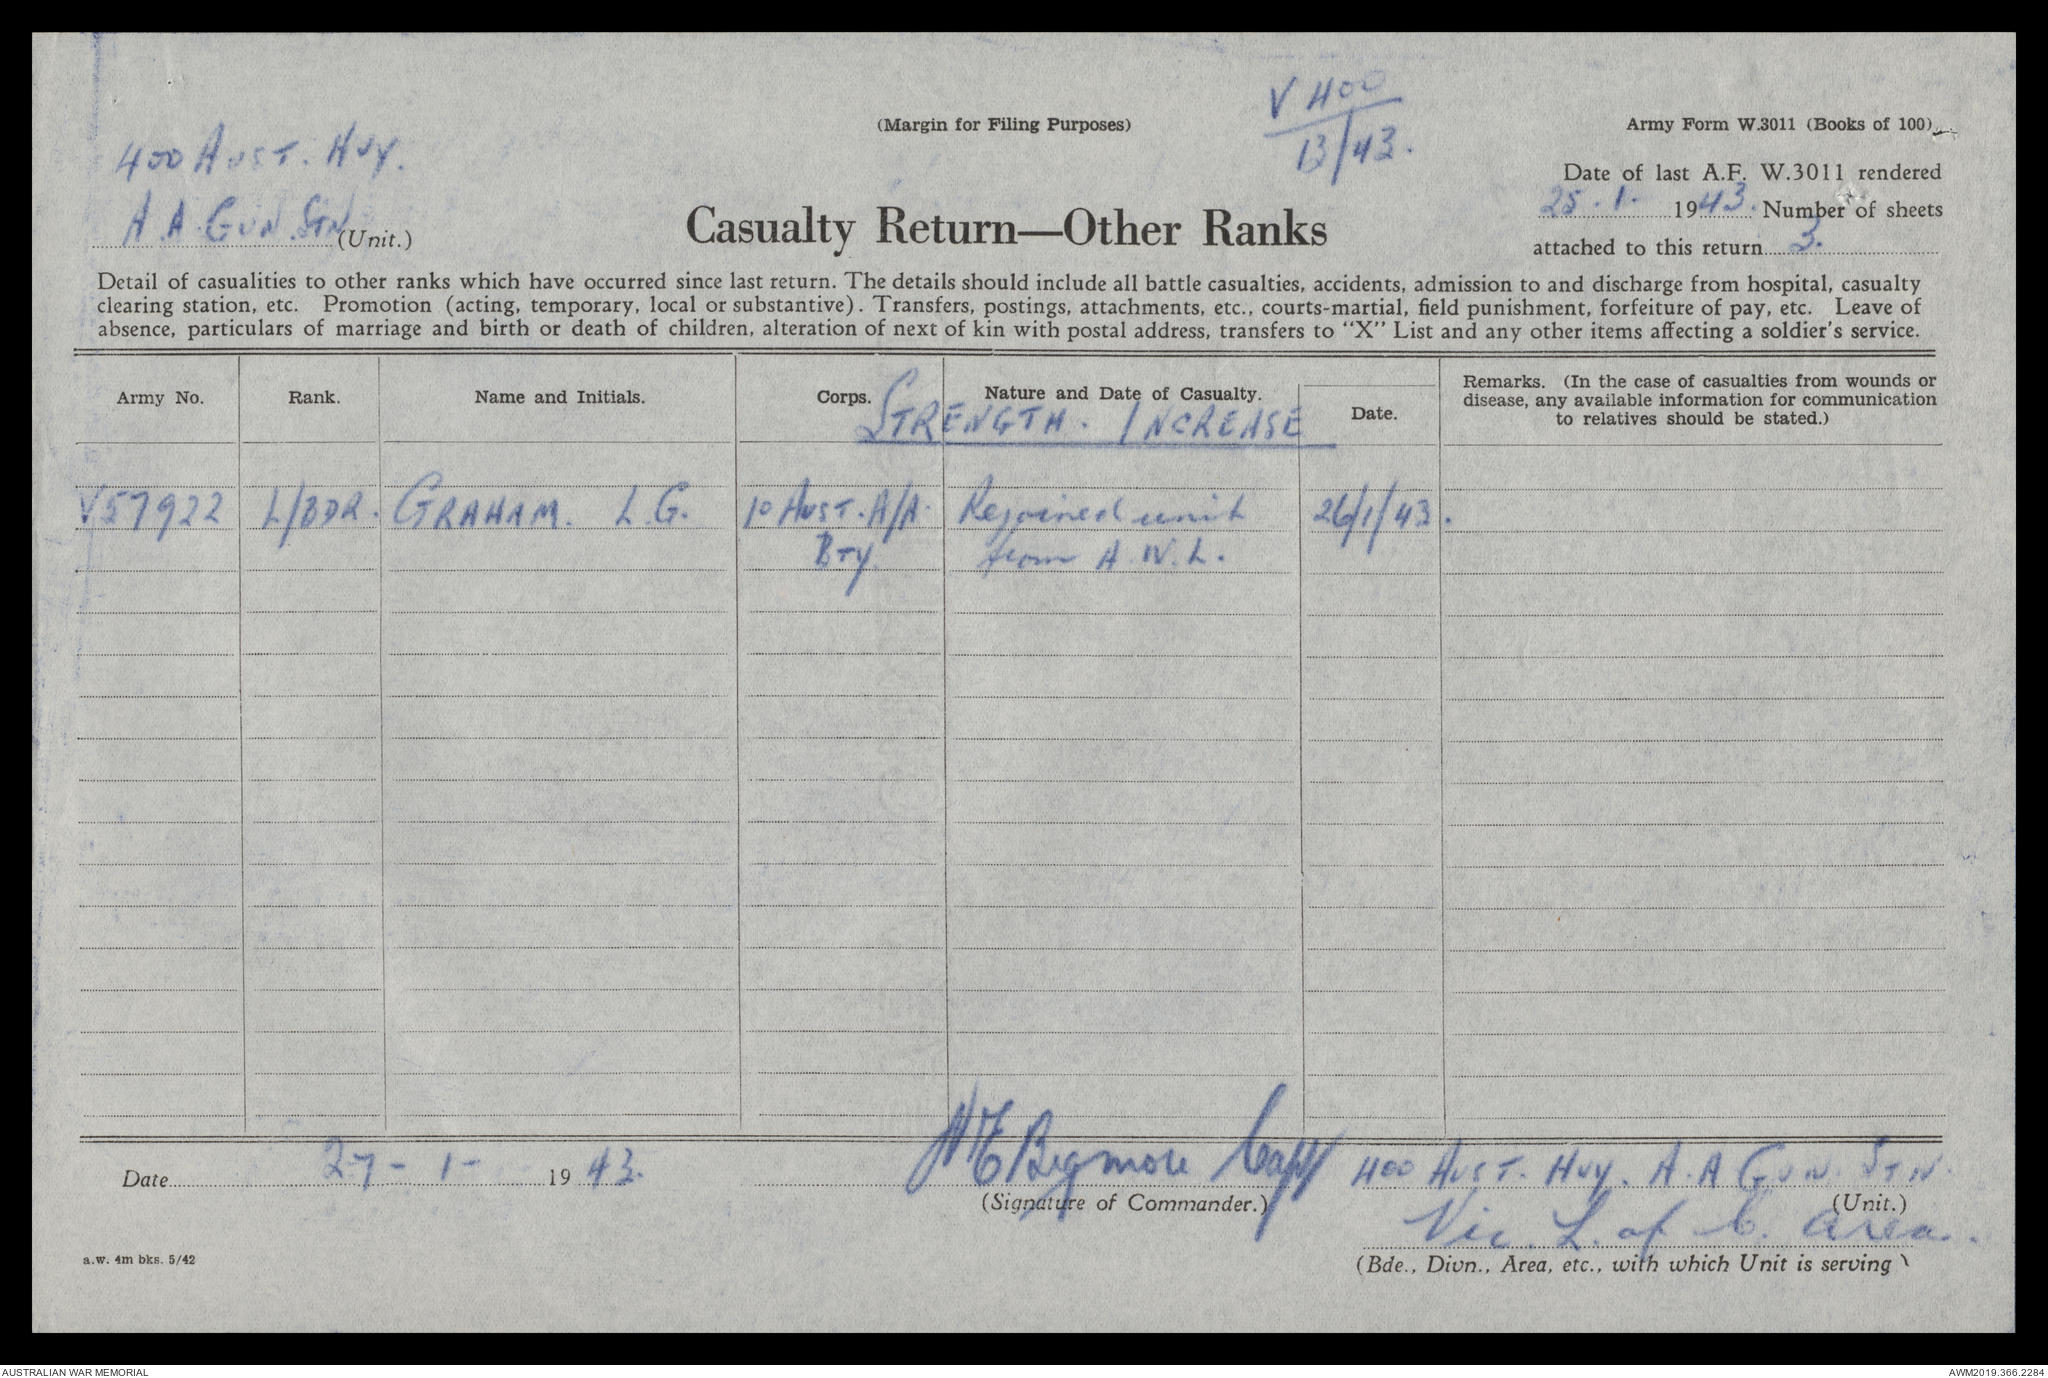 V 400
13/43.
(Margin for Filing Purposes)
Army Form W.3011 (Books of 100)
400 AUST. HVY.
A.A. GUN STN (Unit.)
Casualty Return—Other Ranks
Date of last A.F. W.3011 rendered
25.1. 1943. Number of sheets
attached to this return 3.
Detail of casualities to other ranks which have occurred since last return. The details should include all battle casualties, accidents, admission to and discharge from hospital, casualty
clearing station, etc. Promotion (acting, temporary, local or substantive). Transfers, postings, attachments, etc., courts-martial, field punishment, forfeiture of pay, etc. Leave of
absence, particulars of marriage and birth or death of children, alteration of next of kin with postal address, transfers to "X" List and any other items affecting a soldier's service.
Army No. Rank. Name and Initials. Corps. Nature and Date of Casualty. Date. Remarks. (In the case of casualties from wounds or
disease, any available information for communication
to relatives should be stated.)
STRENGTH. INCREASE
V57922 L/BDR. GRAHAM. L.G. 10 AUST. A/A. Rejoined unit 26/1/43.
BTY. from A.W.L.
Date 27-1- 1943. H E Bigmore Capt 400 AUST. HVY. A.A GUN. STN.
(Signature of Commander.) (Unit.)
Vic. L. of C. Area.
a.w. 4m bks. 5/42
(Bde., Divn., Area, etc., with which Unit is serving)
AUSTRALIAN WAR MEMORIAL
AWM2019.366.2284